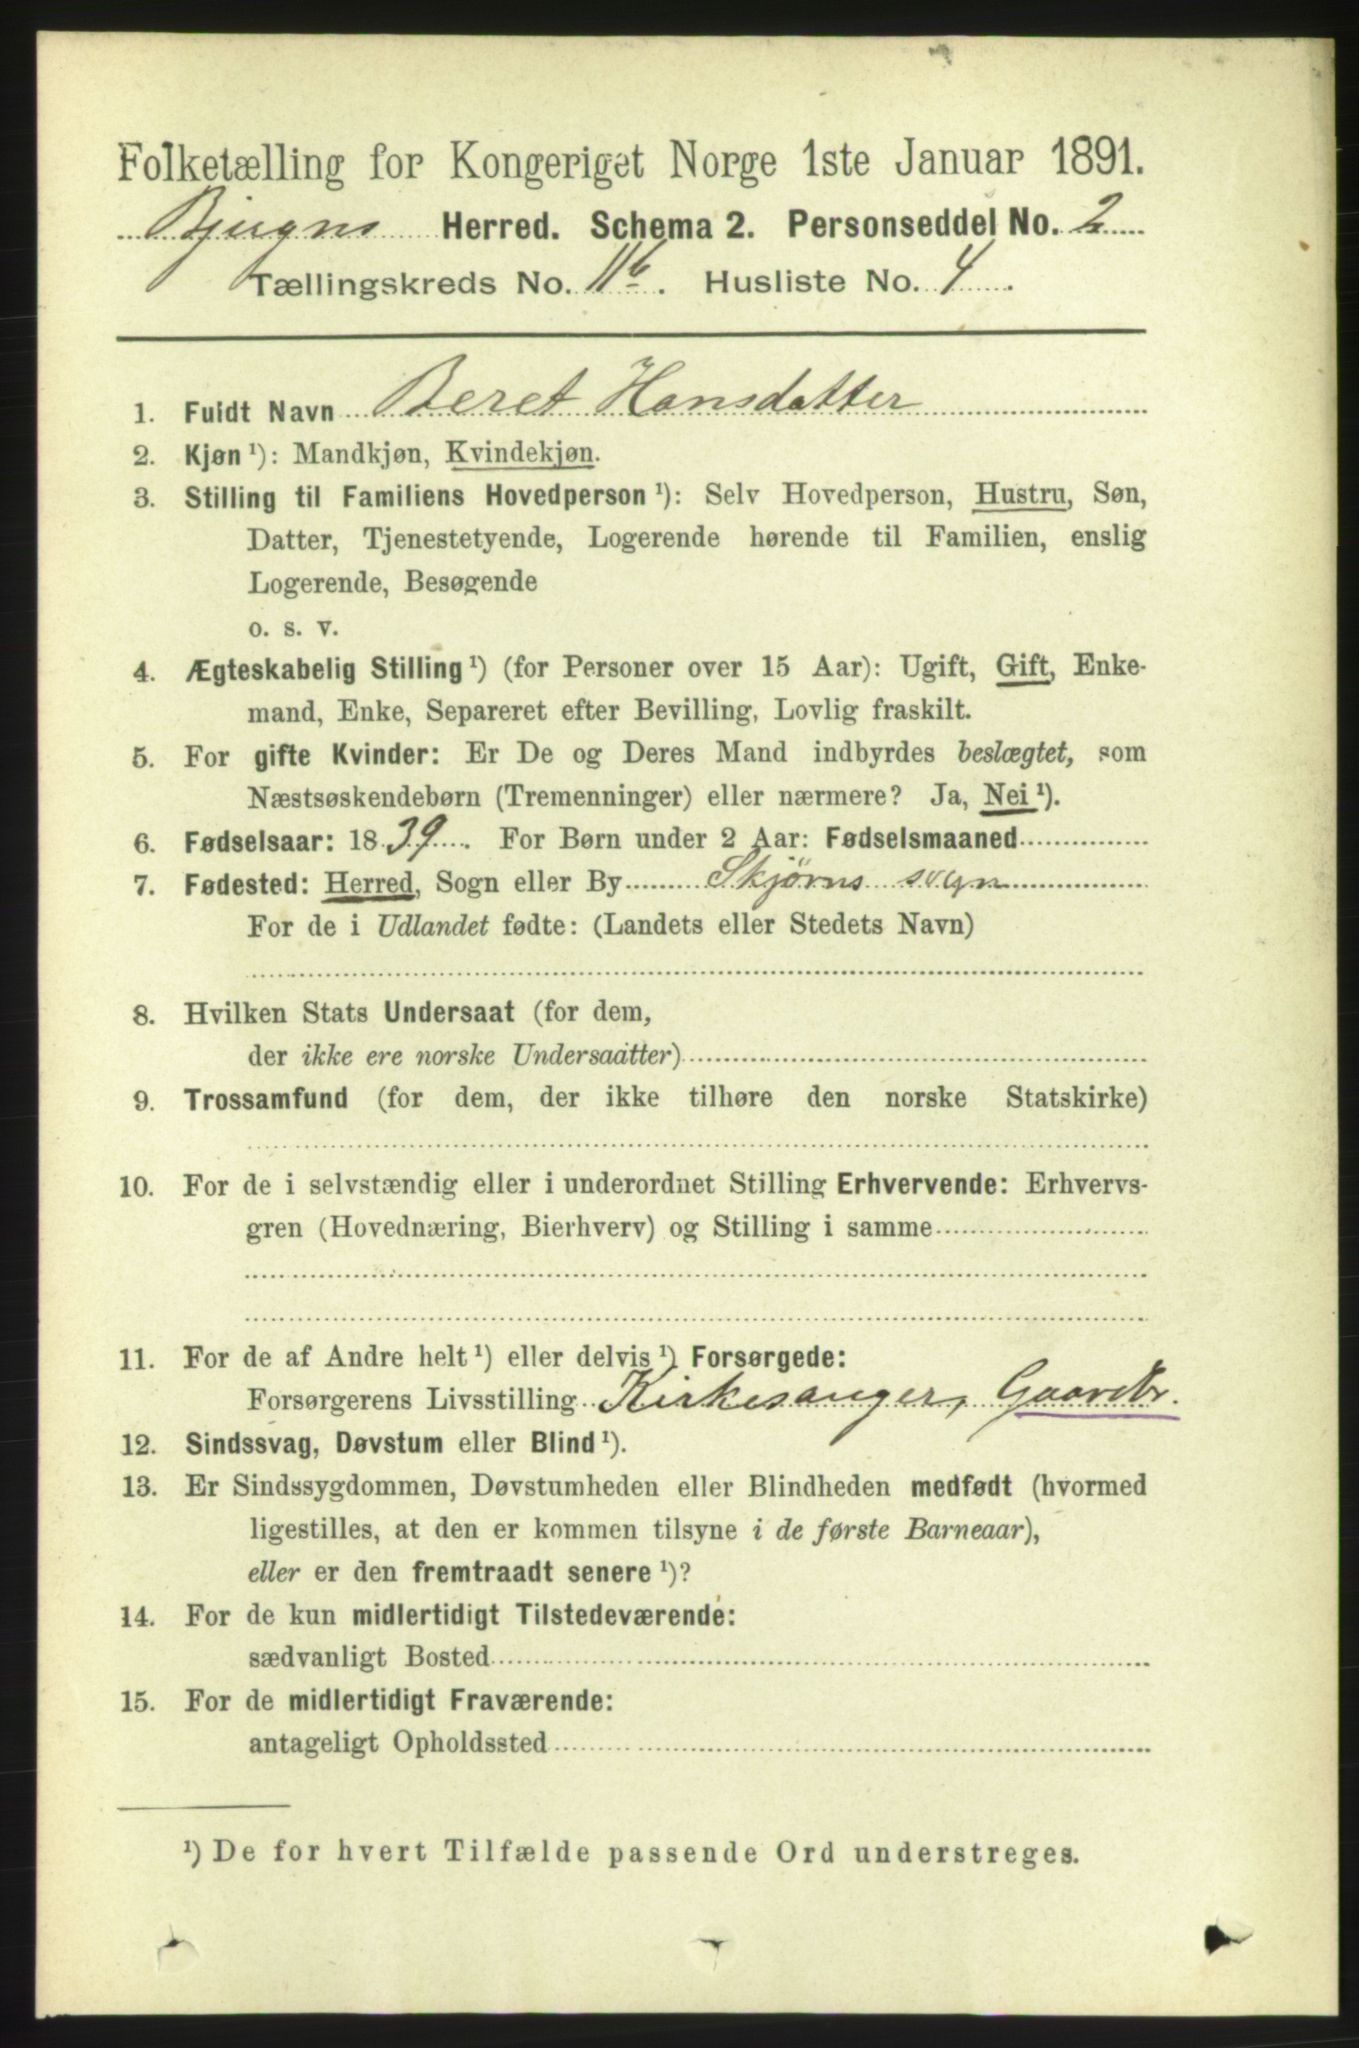 Folketælling for Kongeriget Norge 1ste Januar 1891.
Bjugns Herred. Schema 2. Personseddel No. 2
Tællingskreds No. 11b. Husliste No. 4.
1. Fuldt Navn Beret Hansdatter
2. Kjøn ¹): Mandkjøn, Kvindekjøn.
3. Stilling til Familiens Hovedperson ¹): Selv Hovedperson, Hustru, Søn,
Datter, Tjenestetyende, Logerende hørende til Familien, enslig
Logerende, Besøgende
o. s. v.
4. Ægteskabelig Stilling ¹) (for Personer over 15 Aar): Ugift, Gift, Enke-
mand, Enke, Separeret efter Bevilling, Lovlig fraskilt.
5. For gifte Kvinder: Er De og Deres Mand indbyrdes beslægtet, som
Næstsøskendebørn (Tremenninger) eller nærmere? Ja, Nei ¹).
6. Fødselsaar: 1839. For Børn under 2 Aar: Fødselsmaaned
7. Fødested: Herred, Sogn eller By Skjørns sogn
For de i Udlandet fødte: (Landets eller Stedets Navn)
8. Hvilken Stats Undersaat (for dem,
der ikke ere norske Undersaatter)
9. Trossamfund (for dem, der ikke tilhøre den norske Statskirke)
10. For de i selvstændig eller i underordnet Stilling Erhvervende: Erhvervs-
gren (Hovednæring, Bierhverv) og Stilling i samme
11. For de af Andre helt ¹) eller delvis ¹) Forsørgede:
Forsørgerens Livsstilling Kirkesanger, Gaardbr.
12. Sindssvag, Døvstum eller Blind ¹).
13. Er Sindssygdommen, Døvstumheden eller Blindheden medfødt (hvormed
ligestilles, at den er kommen tilsyne i de første Barneaar),
eller er den fremtraadt senere ¹)?
14. For de kun midlertidigt Tilstedeværende:
sædvanligt Bosted
15. For de midlertidigt Fraværende:
antageligt Opholdssted
¹) De for hvert Tilfælde passende Ord understreges.